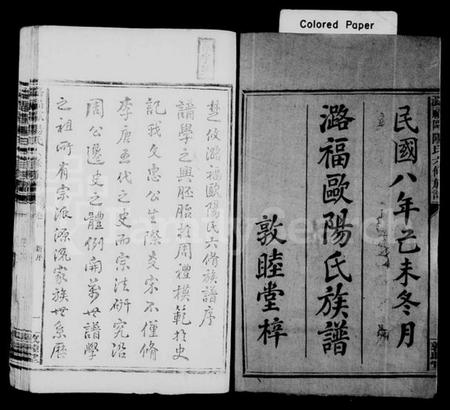 Colored Paper
民國八年己未冬月
潞福歐陽氏族譜
敦睦堂梓
楚攸潞福歐陽氏六修族譜序
譜學之興胚胎於周禮模範於史
記我文忠公生際炎宋不僅脩
李唐五代之史而宗法研究沿
周公遷史之體例開萬世譜學
之祖所有宗派源流家族世系歷